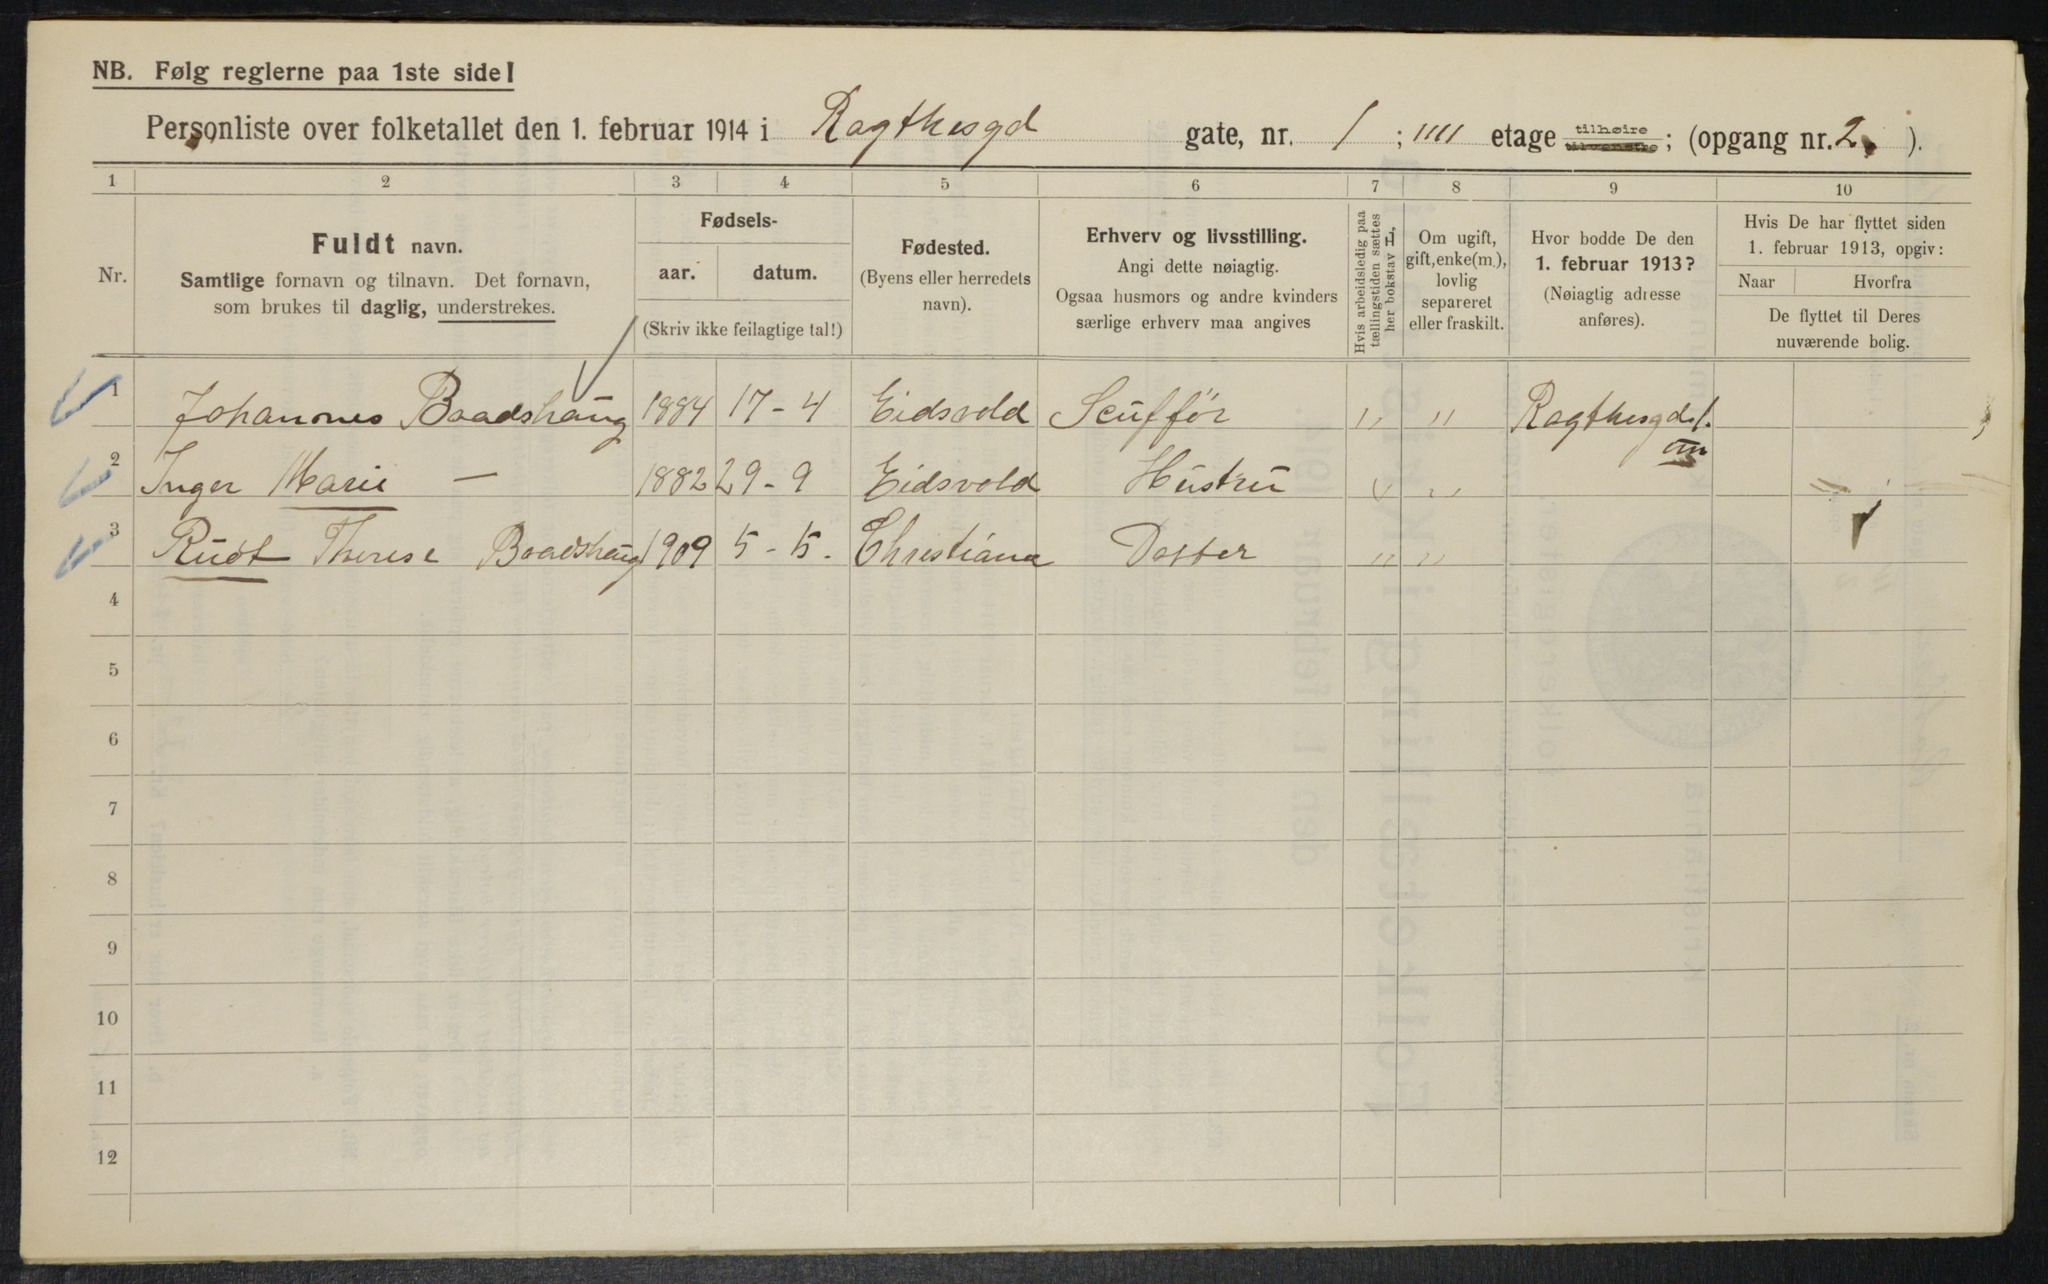 NB. Følg reglerne paa 1ste side!
Personliste over folketallet den 1. februar 1914 i Ragthesgd gate, nr. 1 ; IIII etage tilhøire tilvenstre ; (opgang nr. 2 ).
1 2 3 4 5 6 7 8 9 10
Nr.
Fuldt navn.
Samtlige fornavn og tilnavn. Det fornavn,
som brukes til daglig, understrekes.
Fødsels-
aar. datum.
(Skriv ikke feilagtige tal!)
Fødested.
(Byens eller herredets
navn).
Erhverv og livsstilling.
Angi dette nøiagtig.
Ogsaa husmors og andre kvinders
særlige erhverv maa angives
Hvis arbeidsledig paa
tællingstiden sættes
her bokstav L.
Om ugift,
gift, enke(m.),
lovlig
separeret
eller fraskilt.
Hvor bodde De den
1. februar 1913?
(Nøiagtig adresse
anføres).
Hvis De har flyttet siden
1. februar 1913, opgiv:
Naar Hvorfra
De flyttet til Deres
nuværende bolig.
1 Johannes Baadshaug 1884 17 - 4 Eidsvold Scuffør " " Ragthesgd 1.
2 Inger Marie — 1882 29 - 9 Eidsvold Hustru " "
3 Rudt Therese Baadshaug 1909 5 - 5. Christiana Datter " "
4
5
6
7
8
9
10
11
12